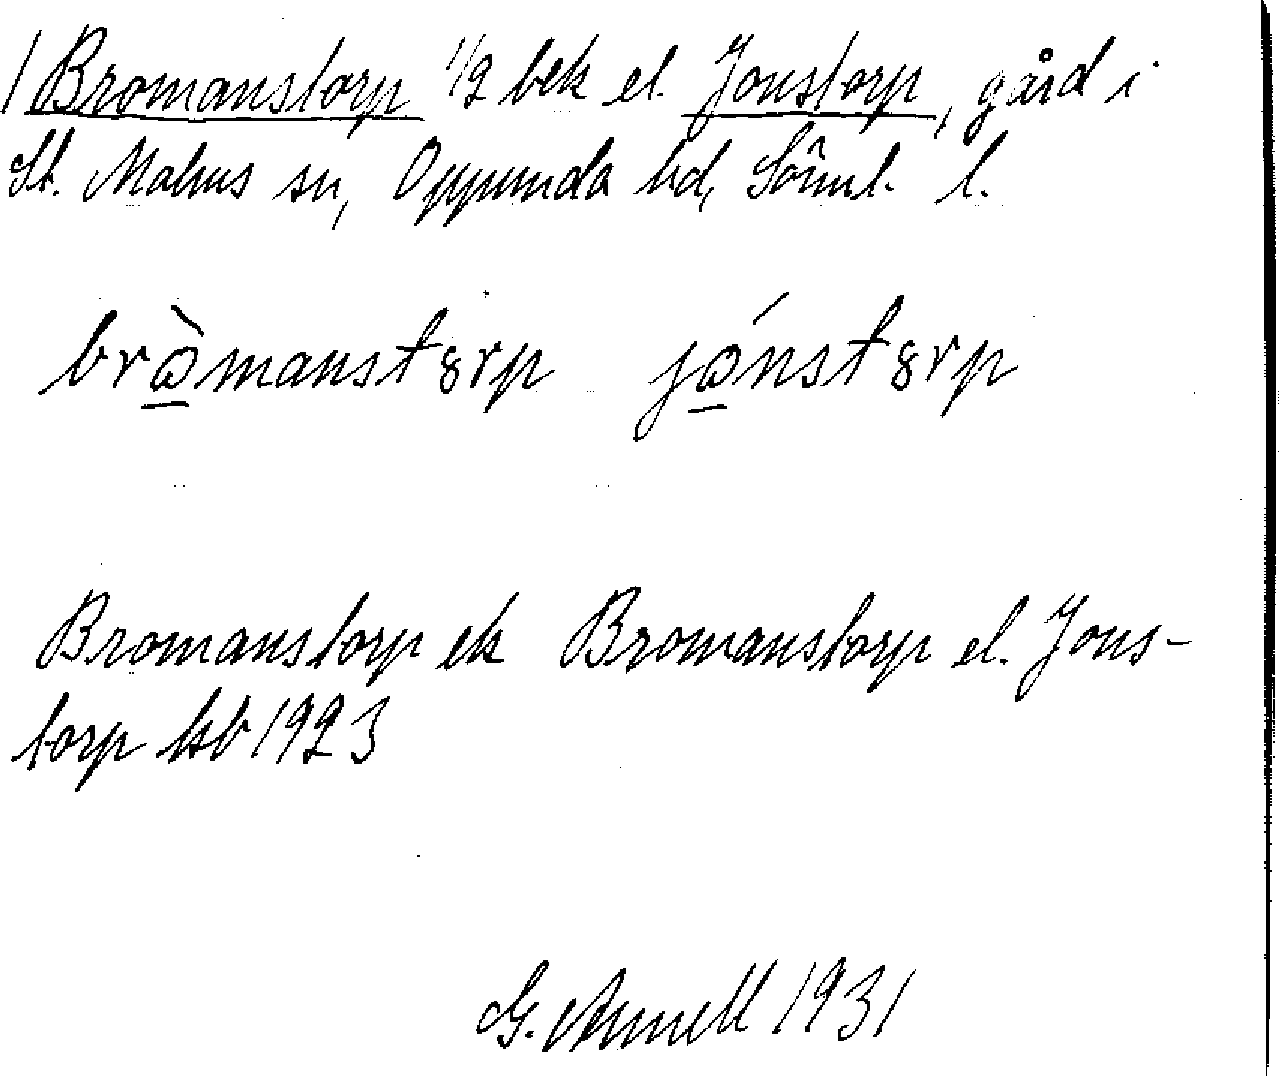 1 Bromanstorp 1/2 bek el. Jonstorp, gård i
St. Malms sn, Oppunda hd, Söml. l.
bròmanstɤrp jónstɤrp
Bromanstorp ek Bromanstorp el. Jons-
torp ksb 1923
G. Annell 1931